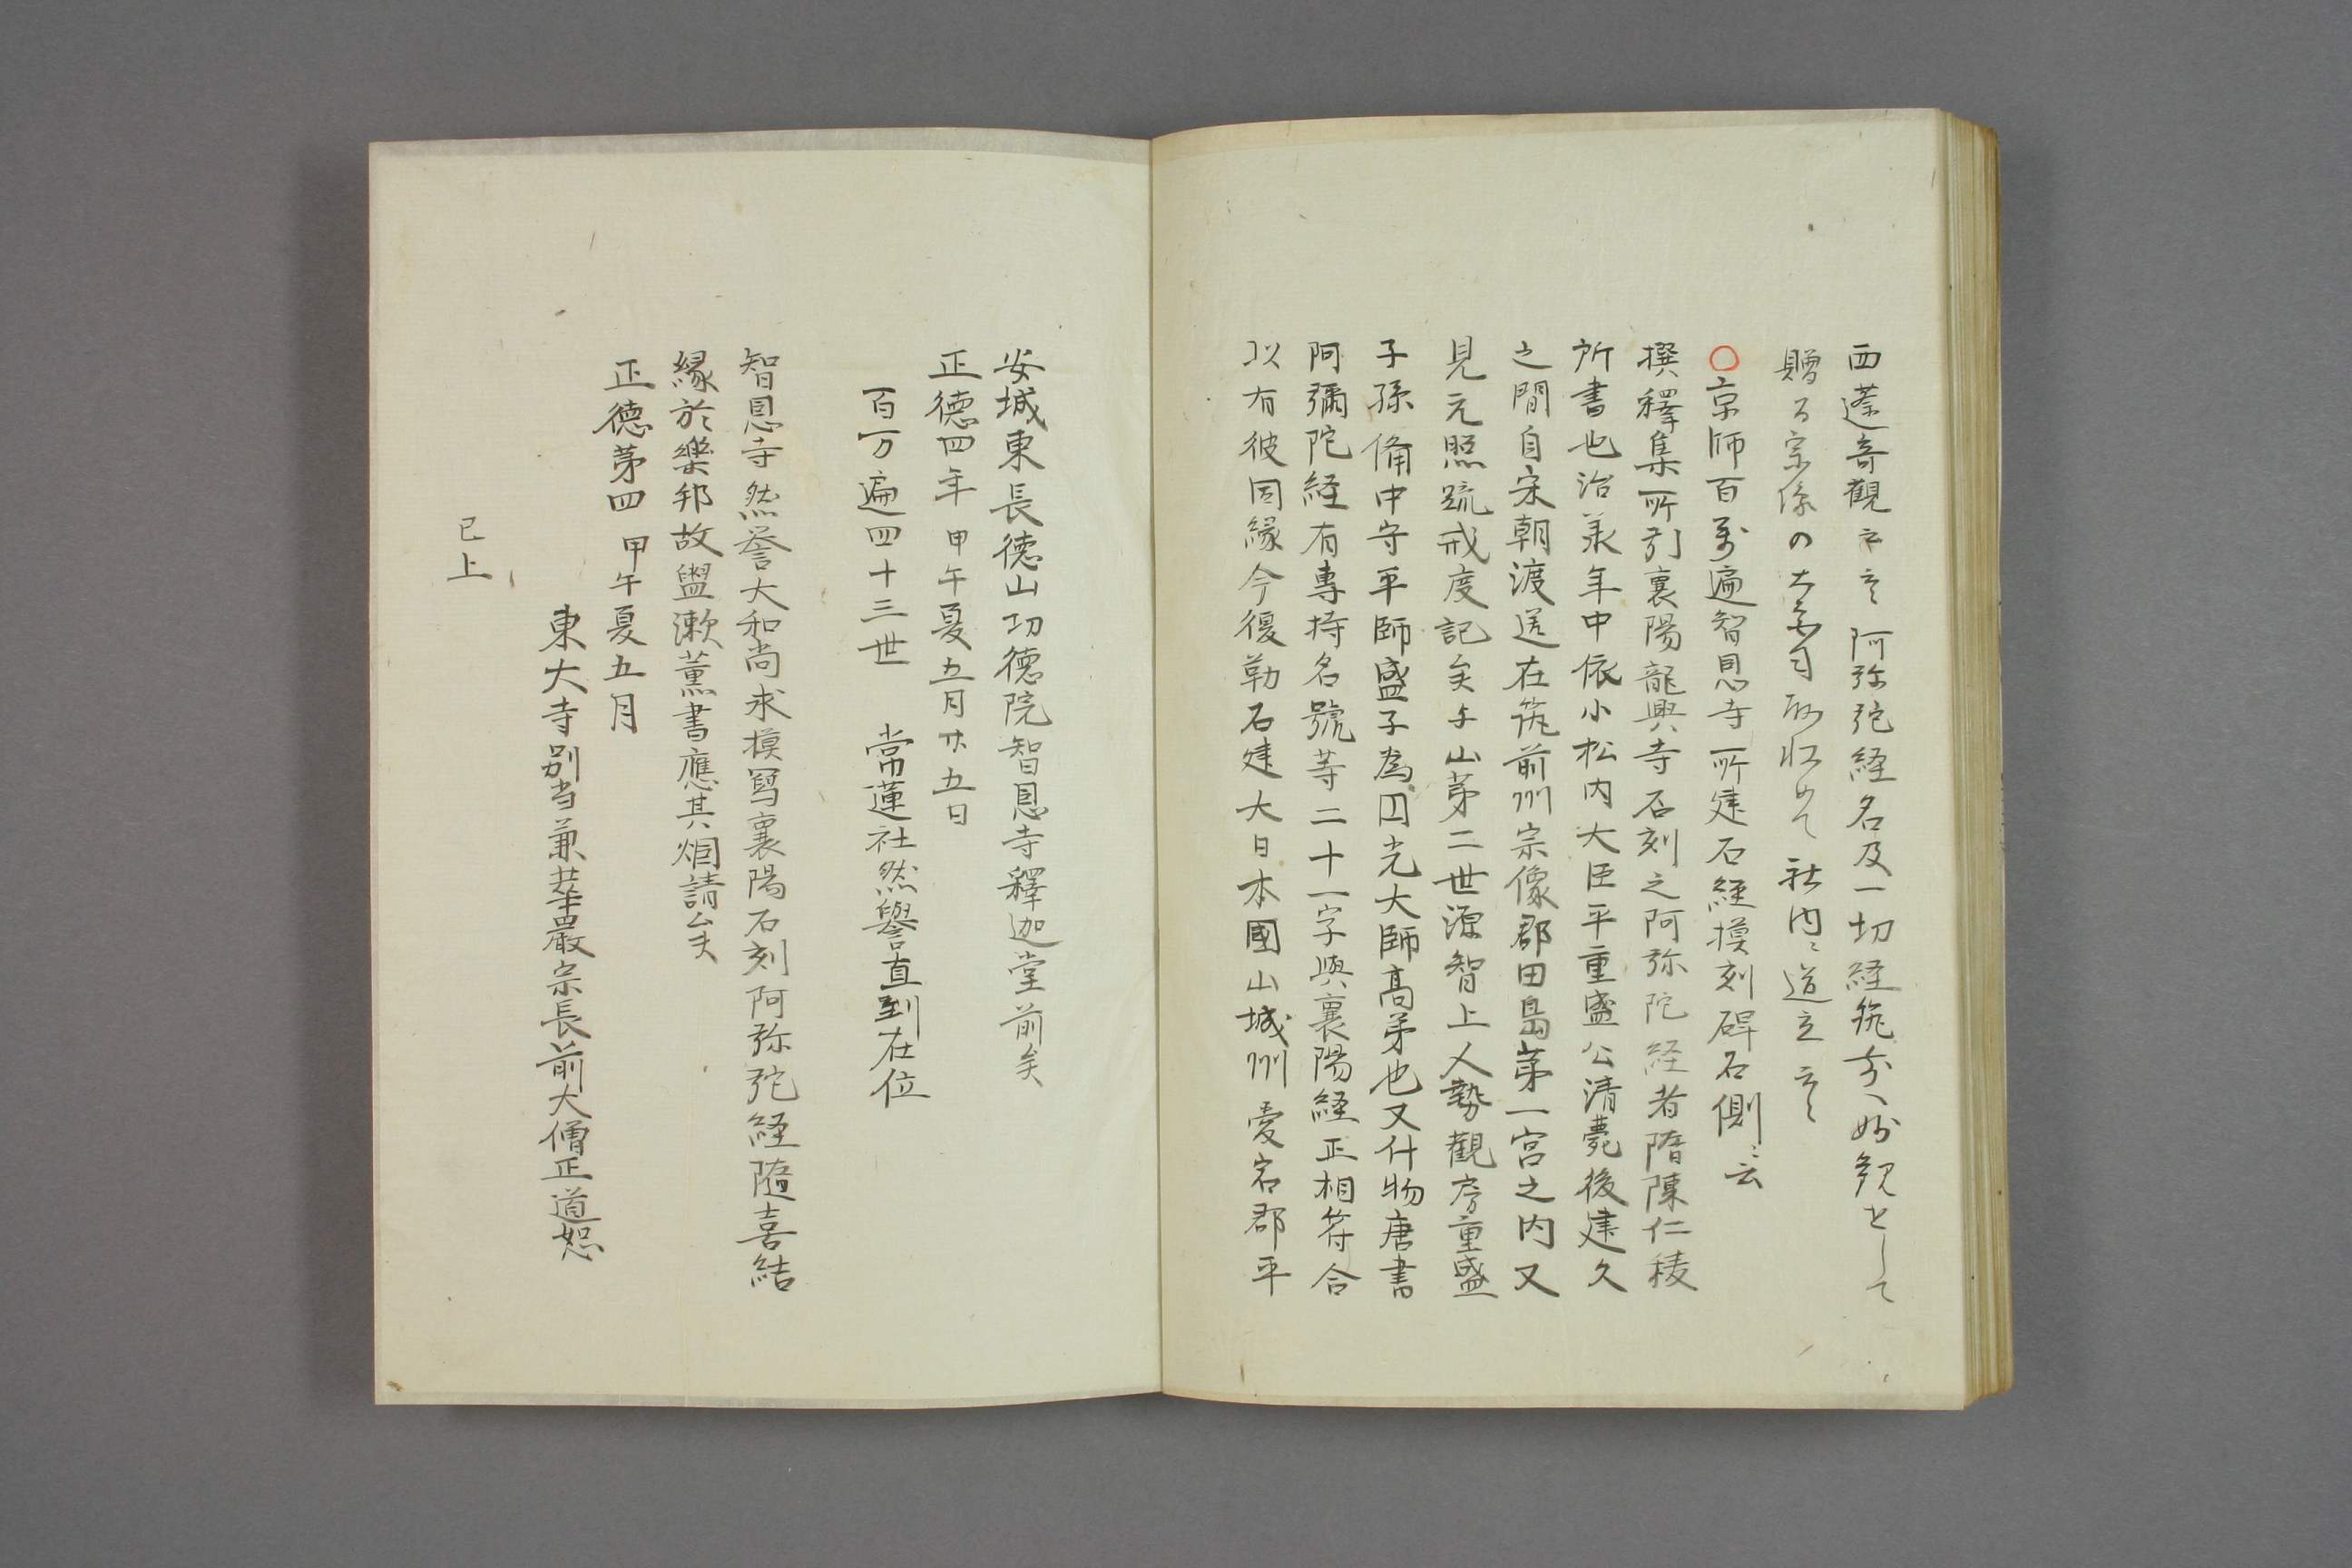 西蓬奇觀ニ云 阿弥陀経名及一切経筑前ヘ妙観として
贈る宗像の大宮司取収めて社内ニ道立云々
○京師百萬遍智恩寺所建石經摸刻碑石側ニ云
撰釋集所引襄陽龍興寺石刻之阿弥陀経者隋陳仁稜
所書也治承年中依小松内大臣平重盛公清薨後建久
之間自宋朝渡送在筑前州宗像郡田島第一宮之内又
見元照䟽戒度記矣于山第二世源智上人勢觀房重盛
子孫備中守平師盛子為円光大師高弟也又什物唐書
阿彌陀経有專持名號等二十一字與襄陽経正相符合
以有彼因縁今復勒石建大日本國山城州愛宕郡平
安城東長德山功德院智恩寺釋迦堂前矣
正德四年甲午夏五月廿五日
百万遍四十三世 常蓮社然譽直到在位
智恩寺然誉大和尚求摸寫襄陽石刻阿弥陀経隨喜結
縁於樂邦故盥漱薫書應其悃請矣
正德第四甲午夏五月
東大寺別当兼華嚴宗長前大僧正道恕
已上